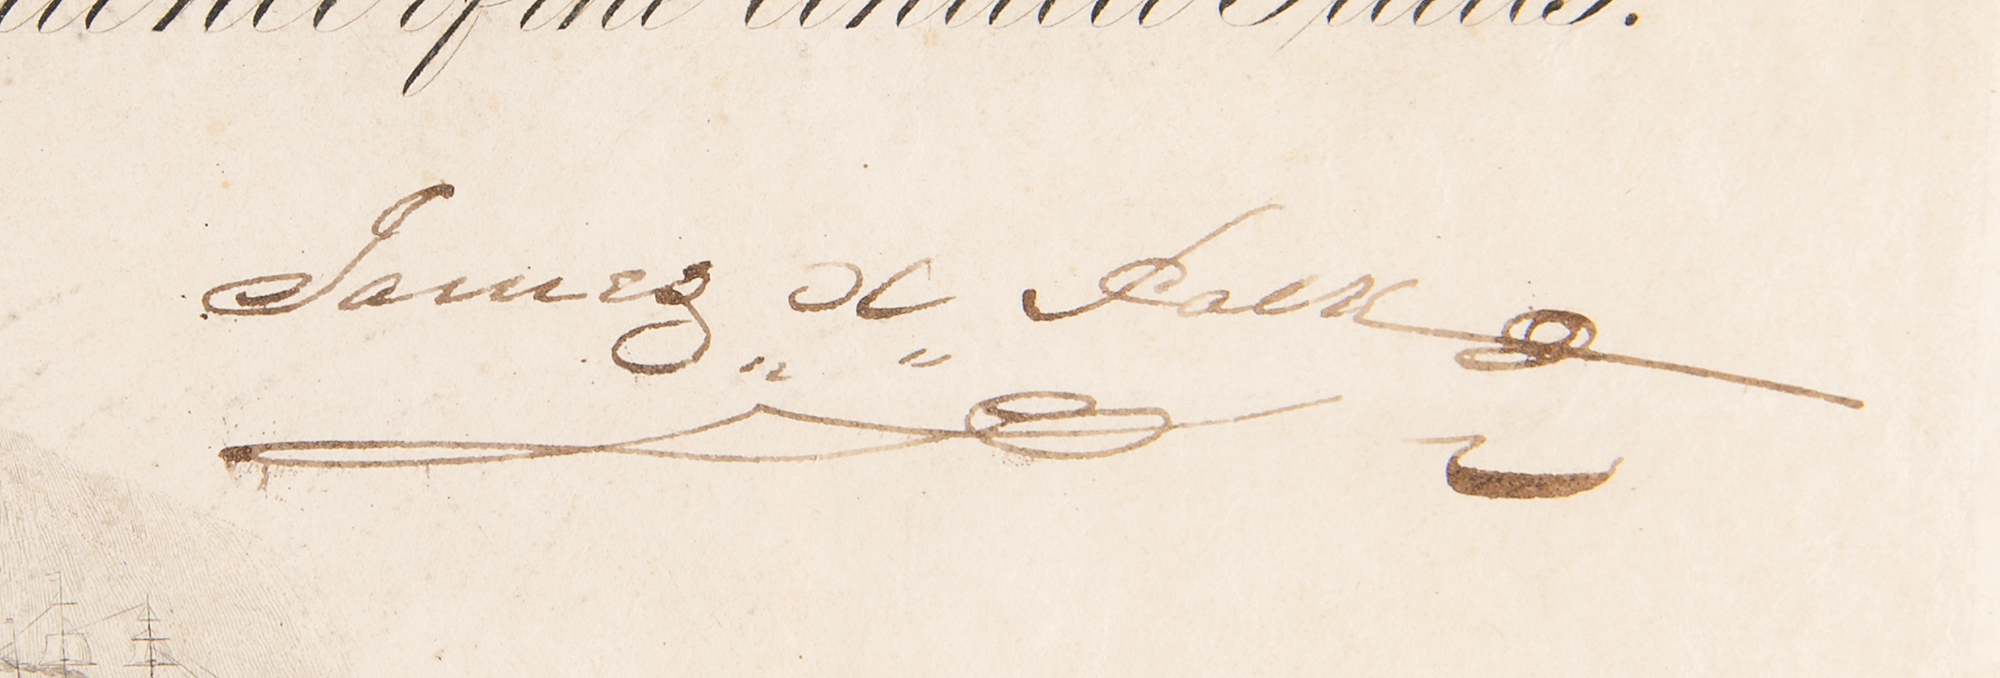 of the United States.
James K Polk